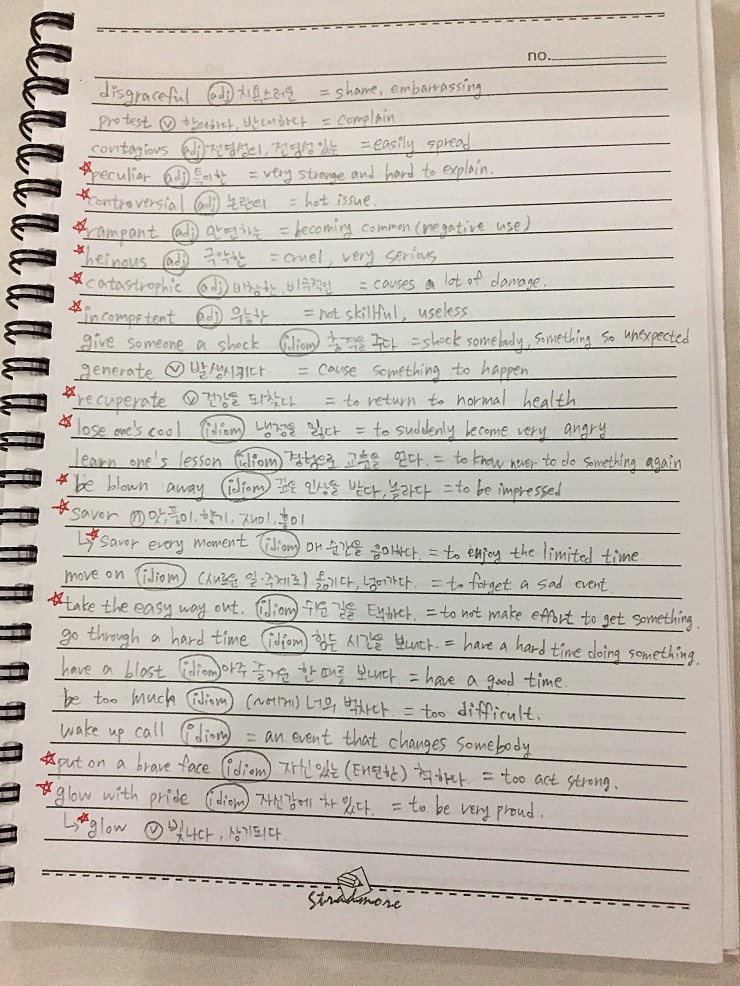 no.
disgraceful (adj) 치욕스러운 = shame, embarrassing
protest (v) 항의하다, 반대하다 = complain
contagious (adj) 전염성의, 전염성 있는 = easily spread
☆peculiar (adj) 특이한 = very strange and hard to explain.
☆controversial (adj) 논란의 = hot issue.
☆rampant (adj) 만연하는 = becoming common (negative use)
☆heinous (adj) 극악한 = cruel, very serious
☆catastrophic (adj) 비참한, 비극적인 = causes a lot of damage.
☆incompetent (adj) 무능한 = not skillful, useless.
give someone a shock (idiom) 충격을 주다 = shock somebody, something so unexpected
generate (v) 발생시키다 = cause something to happen
☆recuperate (v) 건강을 되찾다 = to return to normal health
☆lose one's cool (idiom) 냉정을 잃다 = to suddenly become very angry
learn one's lesson (idiom) 경험으로 교훈을 얻다. = to know never to do something again
☆be blown away (idiom) 깊은 인상을 받다, 놀라다 = to be impressed
☆savor (n) 맛, 풍미, 향기, 재미, 흥미
↳☆savor every moment (idiom) 매 순간을 음미하다. = to enjoy the limited time.
move on (idiom) (새로운 일·주제로) 옮기다, 넘어가다. = to forget a sad event.
☆take the easy way out. (idiom) 쉬운 길을 택하다. = to not make effort to get something.
go through a hard time (idiom) 힘든 시간을 보내다. = have a hard time doing something.
have a blast (idiom) 아주 즐거운 한때를 보내다. = have a good time.
be too much (idiom) (~에게) 너무 벅차다. = too difficult.
wake up call (idiom) = an event that changes somebody
☆put on a brave face (idiom) 자신 있는 (태연한) 척하다. = too act strong.
☆glow with pride (idiom) 자신감에 차 있다. = to be very proud.
↳☆glow (v) 빛나다, 상기되다.
Strathmore